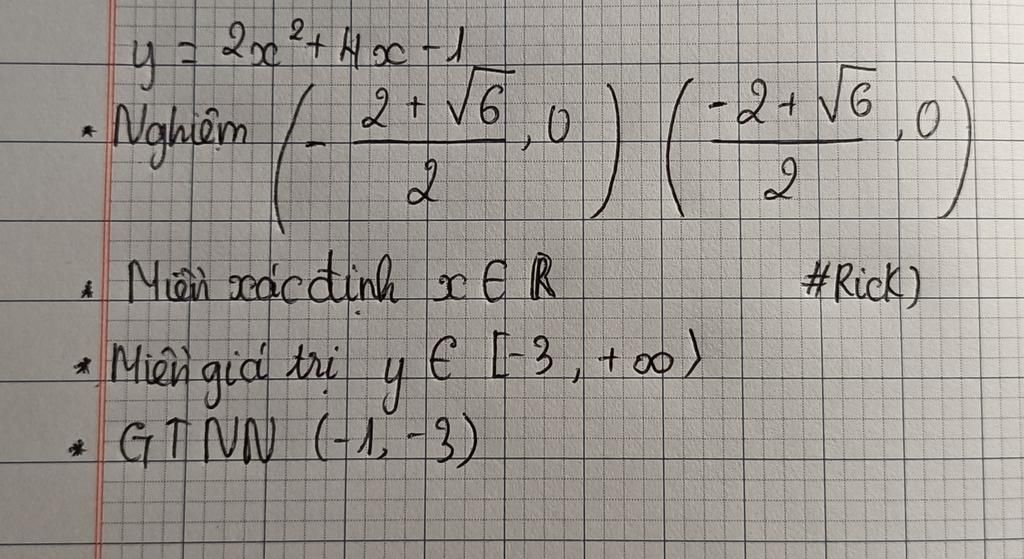 y = 2x² + 4x - 1
* Nghiệm (- (2 + √6)/2, 0) ((-2 + √6)/2, 0)
* Miền xác định x ∈ ℝ #Rick)
* Miền giá trị y ∈ [-3, +∞)
* GTNN (-1, -3)